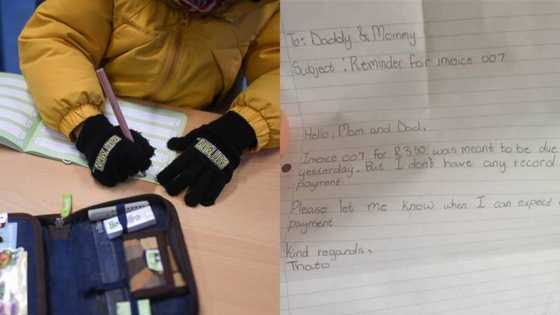 To: Daddy & Mommy
Subject: Reminder for invoice 007
Hello, Mom and Dad,
Invoice 007 for R350 was meant to be due
yesterday. But I don't have any record
payment.
Please let me know when I can expect
payment
Kind regards,
Thato